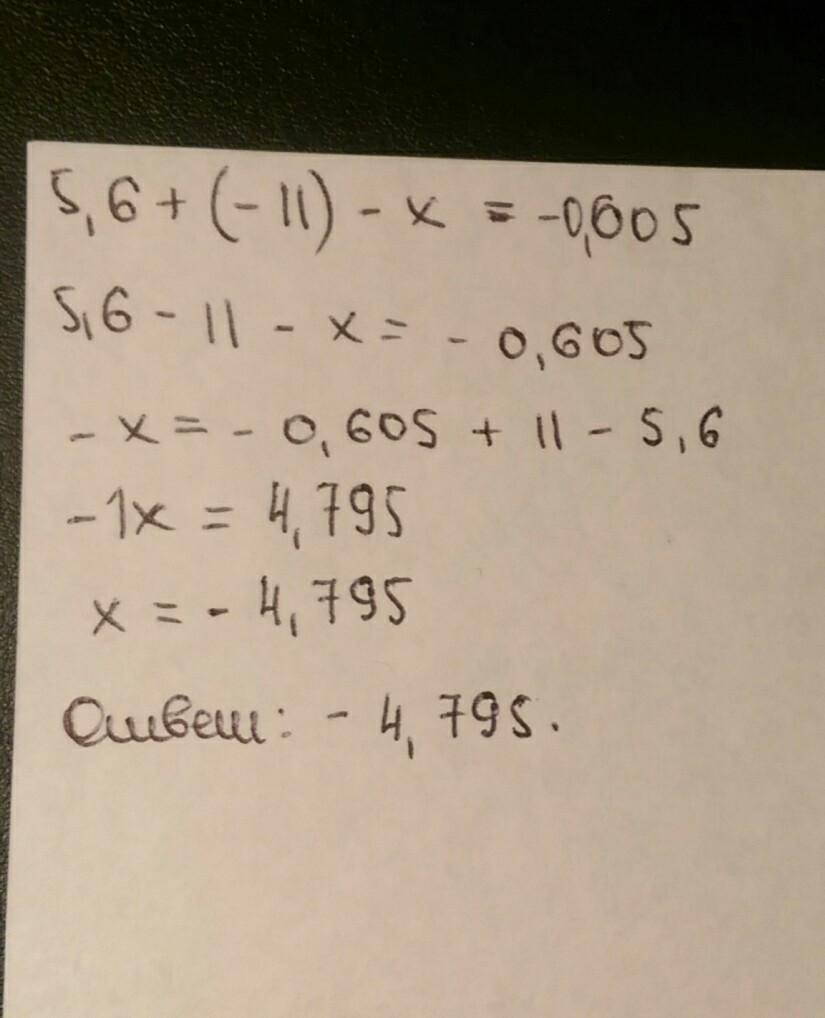 5,6 + (-11) - x = -0,605
5,6 - 11 - x = - 0,605
- x = - 0,605 + 11 - 5,6
-1x = 4,795
x = - 4,795
Ответ: - 4,795.